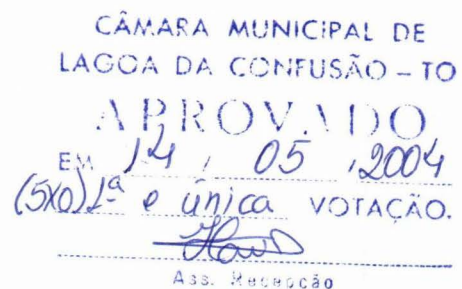 CÂMARA MUNICIPAL DE
LAGOA DA CONFUSÃO – TO
APROVADO
EM 14 / 05 / 2004
(5x0) 1ª e única VOTAÇÃO.
Ass. Recepcão